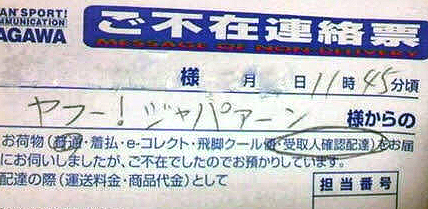 AN SPORT!
MMUNICATION
AGAWA
ご不在連絡票
MESSAGE OF NON-DELIVERY
様 月 日 11時45分頃
ヤフー!ジャパァーン 様からの
お荷物(普通・着払・e-コレクト・飛脚クール便・受取人確認配達)をお届
にお伺いしましたが、ご不在でしたのでお預かりしています。
配達の際(運送料金・商品代金)として
担当番号